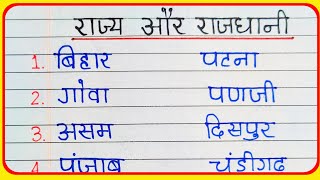 राज्य और राजधानी
1. बिहार पटना
2. गोवा पणजी
3. असम दिसपुर
4 पंजाब चंडीगढ